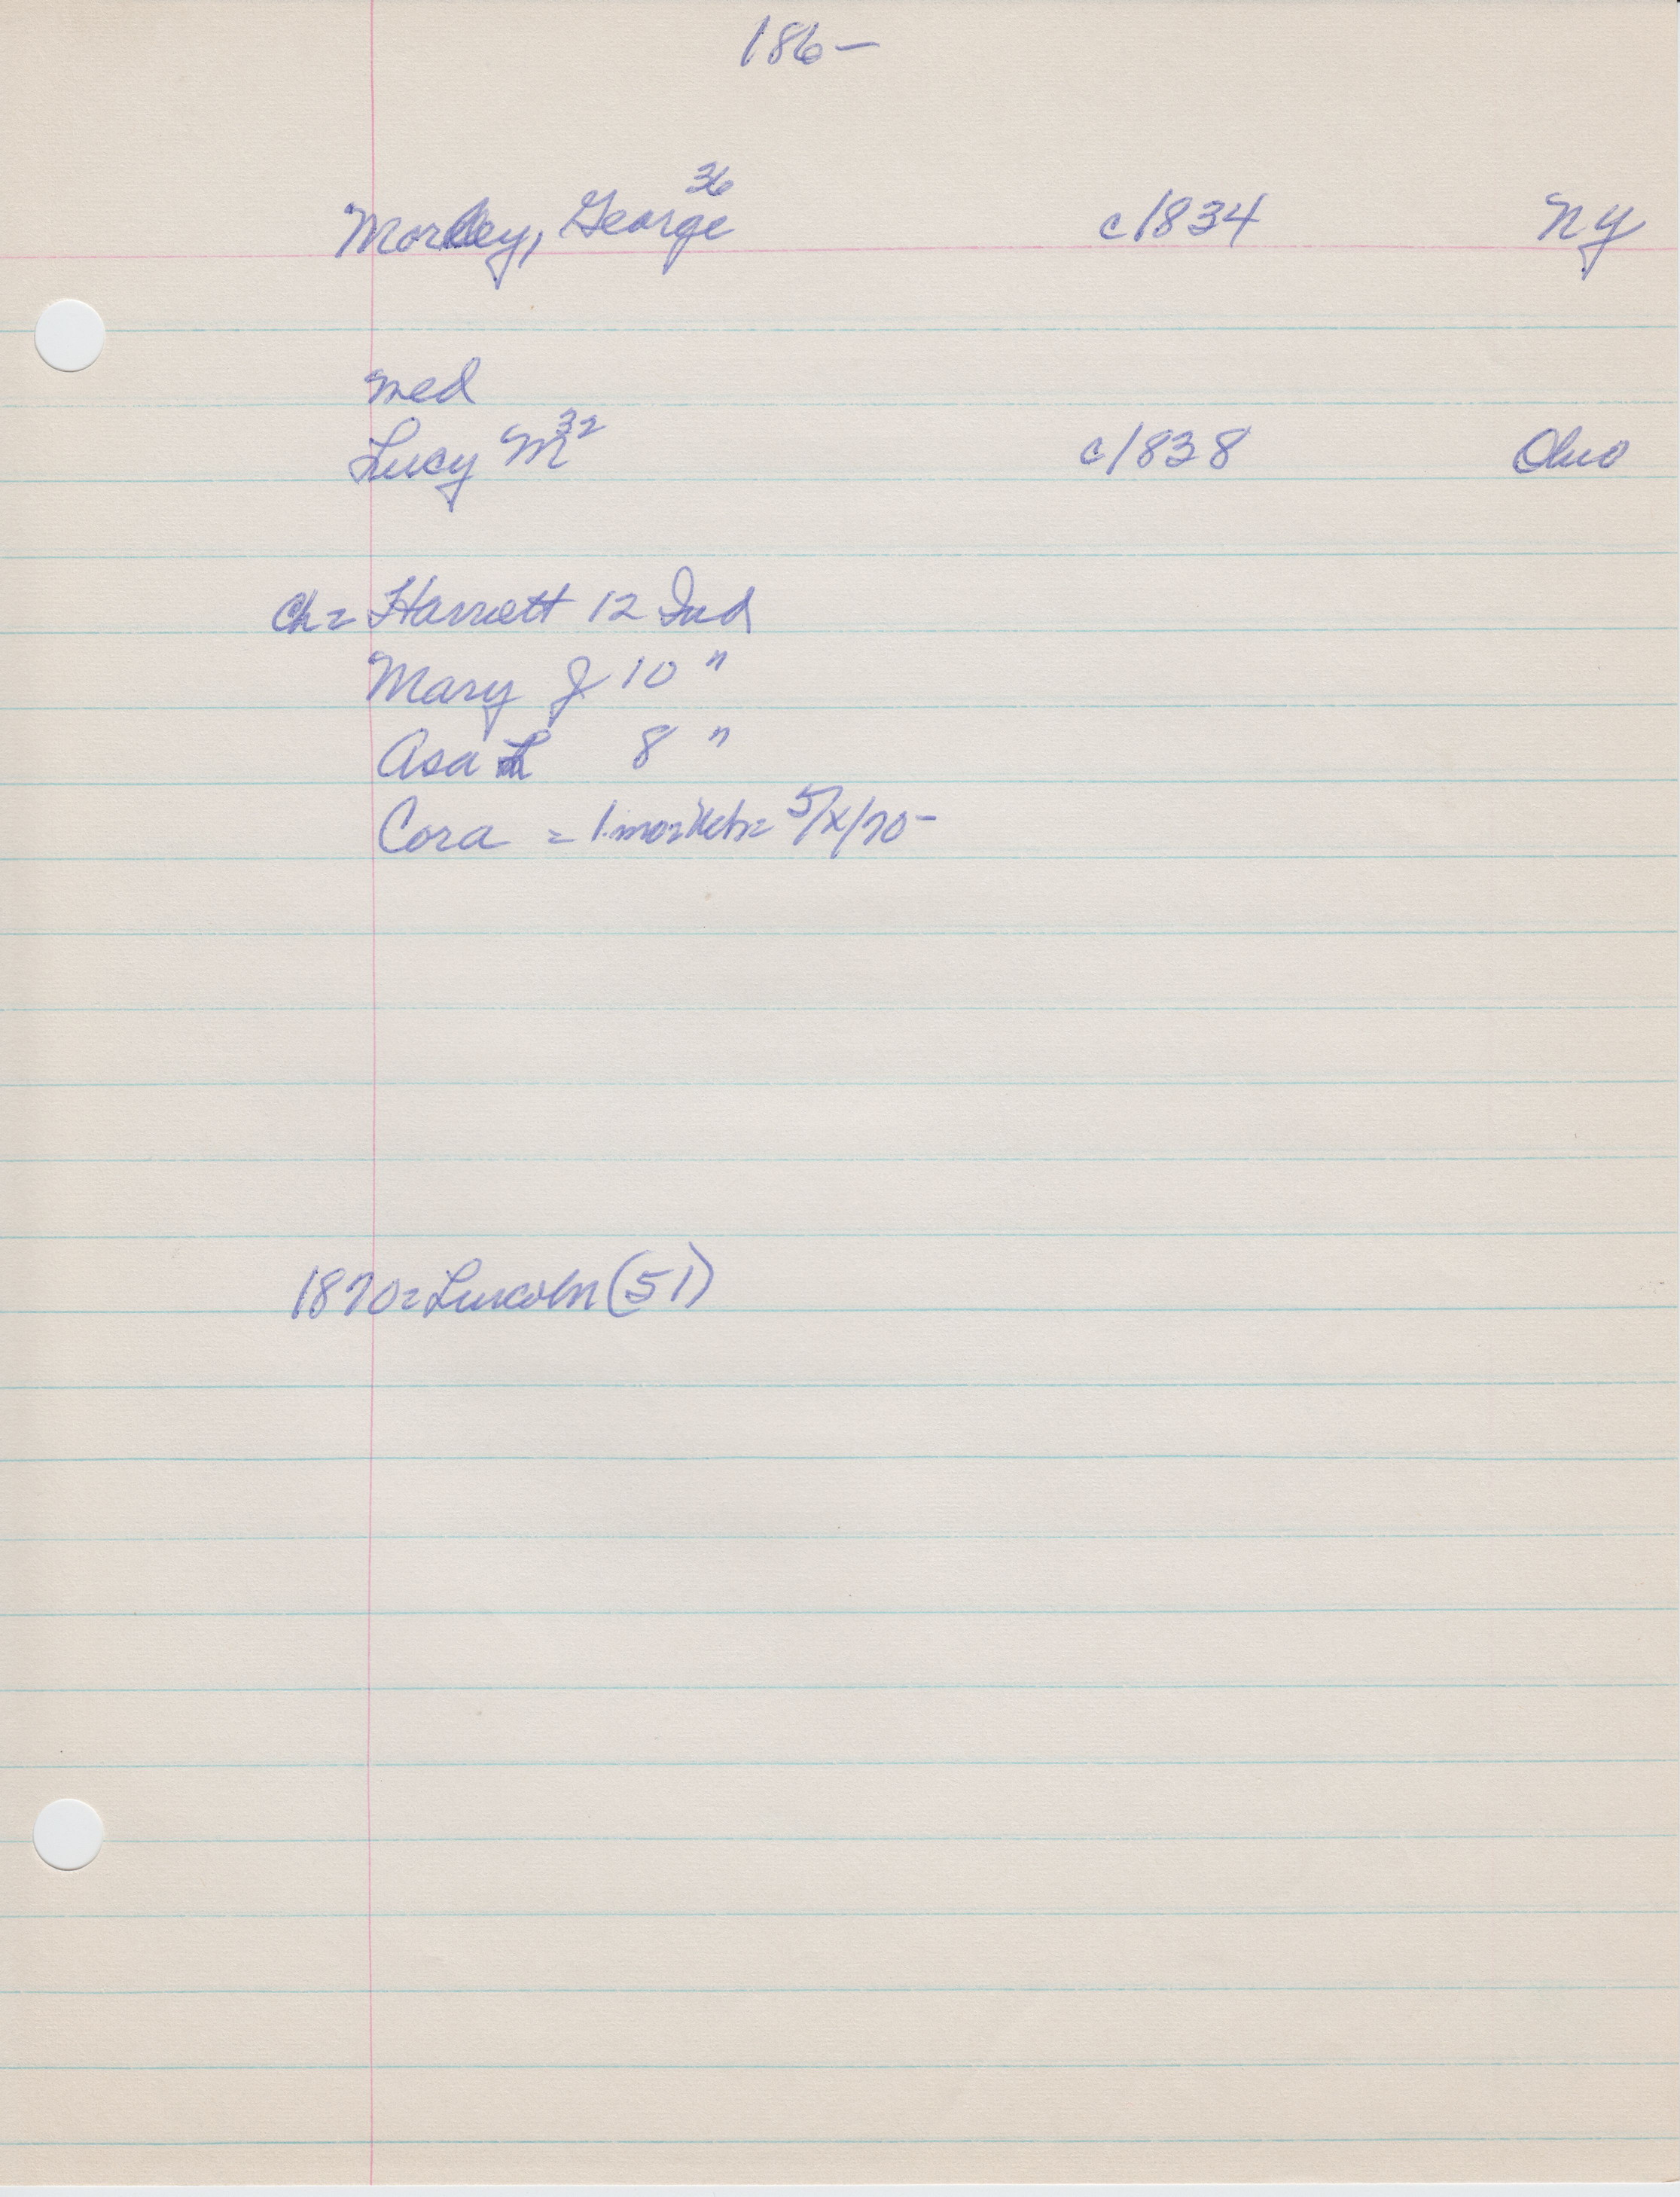 186-
Morley, George 36 c1834 NY
med
Lucy M 32 c1838 Ohio
Ch= Harriett 12 Ind
Mary J 10 "
Asa 8 "
Cora = 1 mo= 5/x/70-
1870=Lincoln (51)